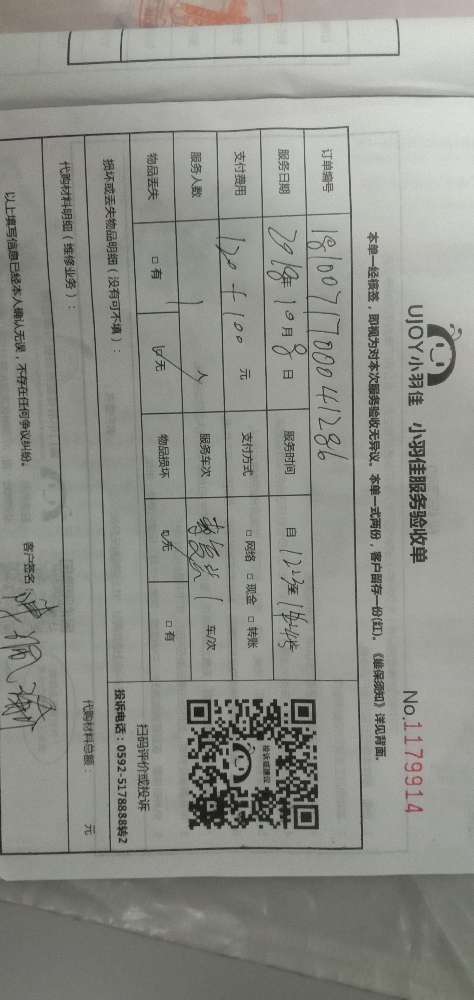 UJOY小羽佳 小羽佳服务验收单
No.1179914
本单一经核签，即视为对本次服务验收无异议。本单一式两份，客户留存一份(红)。《维保须知》详见背面。
订单编号 1810071700041286
服务日期 2018年10月8日 服务时间 自
支付费用 120+100 元 支付方式 □网络 □现金 □转账
服务人数 1 人 服务车次 1 车/次
物品丢失 □有 ☑无 物品损坏 ☑无 □有
损坏或丢失物品明细（没有可不填）：
扫码评价或投诉
投诉电话：0592-5178888转2
代购材料明细（维修业务）：
代购材料总额： 元
以上填写信息已经本人确认无误，不存在任何争议纠纷。
客户签名